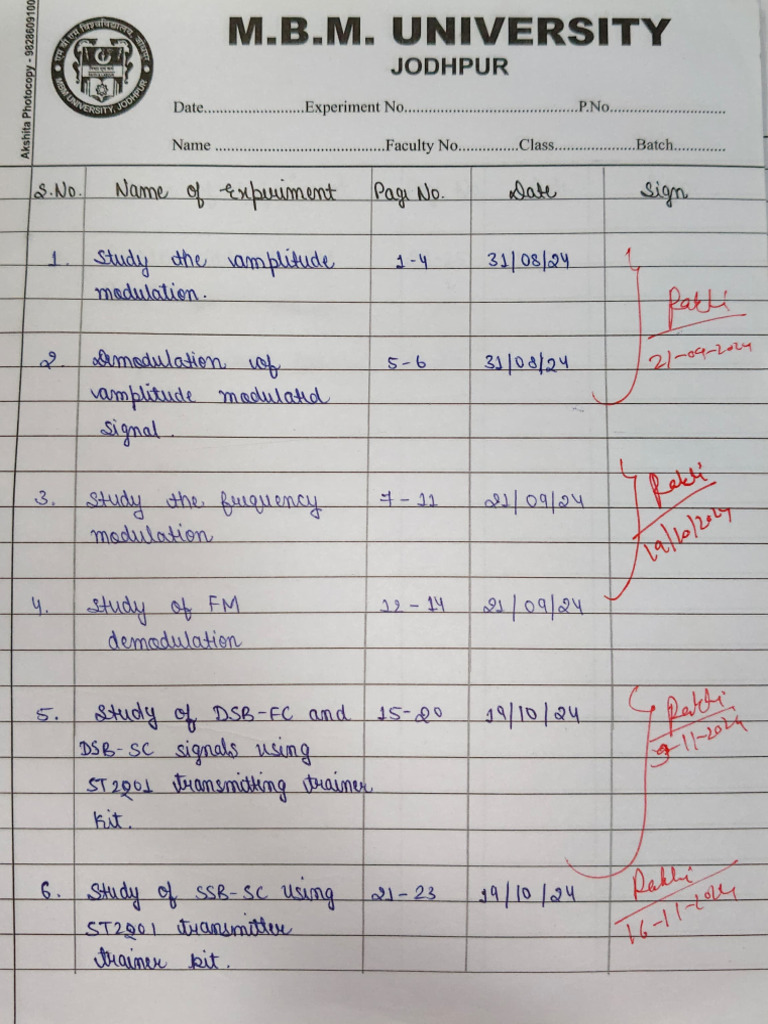 Akshita Photocopy - 9828609100
M.B.M. UNIVERSITY
JODHPUR
MBM UNIVERSITY, JODHPUR
Date.........................Experiment No...........................................P.No.............................
Name ..........................................Faculty No...............Class....................Batch.............
S.No. Name of Experiment Page No. Date Sign
1. Study the amplitude 1-4 31/08/24
modulation.
Rakhi
21-09-2024
2. Demodulation of 5-6 31/08/24
amplitude modulated
signal.
3. Study the frequency 7-11 21/09/24 Rakhi
modulation 19/10/2024
4. Study of FM 12-14 21/09/24
demodulation
5. Study of DSB-FC and 15-20 19/10/24 Rakhi
DSB-SC signals using 9-11-2024
ST2201 transmitting trainer
kit.
6. Study of SSB-SC using 21-23 19/10/24 Rakhi
ST2201 transmitter 16-11-2024
trainer kit.